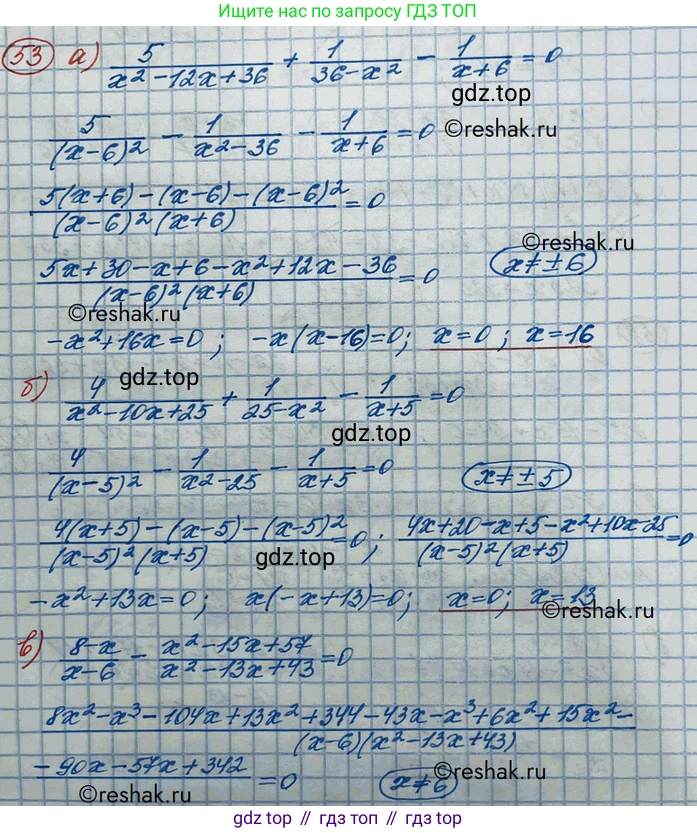 ответы на вопросы по запросу ГДЗ ТОП
53 а) 5/(x²-12x+36) + 1/(36-x²) - 1/(x+6) = 0
гдз.top
5/(x-6)² - 1/(x²-36) - 1/(x+6) = 0 ©reshak.ru
(5(x+6)-(x-6)-(x-6)²)/((x-6)²(x+6)) = 0
©reshak.ru
(5x+30-x+6-x²+12x-36)/((x-6)²(x+6)) = 0 x≠±6
©reshak.ru
-x²+16x=0; -x(x-16)=0; x=0; x=16
гдз.top
б) 4/(x²-10x+25) + 1/(25-x²) - 1/(x+5) = 0
гдз.top
4/(x-5)² - 1/(x²-25) - 1/(x+5) = 0 x≠±5
(4(x+5)-(x-5)-(x-5)²)/((x-5)²(x+5)) = 0; (4x+20-x+5-x²+10x-25)/((x-5)²(x+5)) = 0
гдз.top
-x²+13x=0; x(-x+13)=0; x=0; x=13
©reshak.ru
в) (8-x)/(x-6) - (x²-15x+57)/(x²-13x+43) = 0
8x²-x³-104x+13x²+344-43x-x³+6x²+15x²-
(x-6)(x²-13x+43)
-90x-57x+342 = 0 x≠6
©reshak.ru ©reshak.ru
гдз top // гдз топ // гдз.top